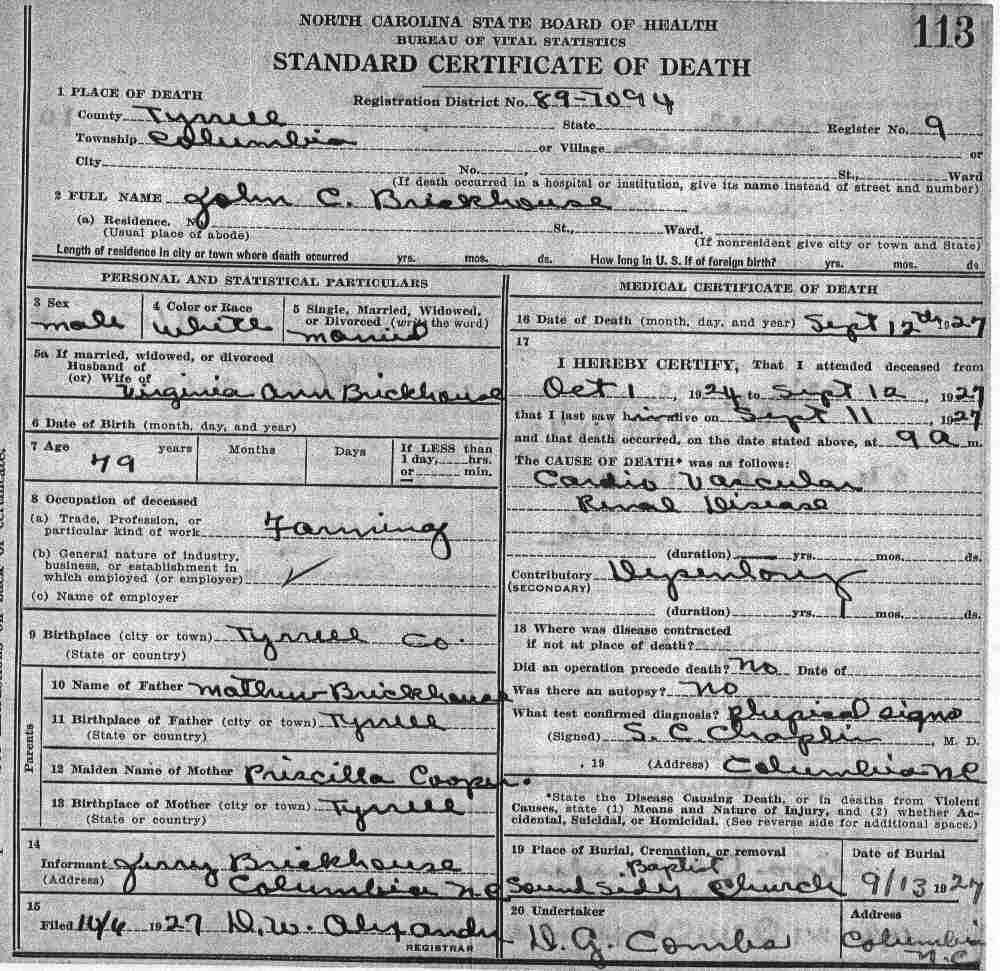 NORTH CAROLINA STATE BOARD OF HEALTH
BUREAU OF VITAL STATISTICS
113
STANDARD CERTIFICATE OF DEATH
1 PLACE OF DEATH
Registration District No. 89-7094
County Tyrrell State Register No. 9
Township Columbia or Village or
City No. , St., Ward
(If death occurred in a hospital or institution, give its name instead of street and number)
2 FULL NAME John C. Brickhouse
(a) Residence. No St., Ward.
(Usual place of abode) (If nonresident give city or town and State)
Length of residence in city or town where death occurred yrs. mos. ds. How long in U. S. if of foreign birth? yrs. mos. ds
PERSONAL AND STATISTICAL PARTICULARS
3 Sex
male
4 Color or Race
white
5 Single, Married, Widowed,
or Divorced (write the word)
married
5a If married, widowed, or divorced
Husband of
(or) Wife of
Virginia Ann Brickhouse
6 Date of Birth (month, day, and year)
7 Age years Months Days
79
If LESS than
1 day, hrs.
or min.
8 Occupation of deceased
(a) Trade, Profession, or
particular kind of work Farming
(b) General nature of industry,
business, or establishment in
which employed (or employer)
(c) Name of employer
9 Birthplace (city or town) Tyrrell Co.
(State or country)
Parents
10 Name of Father Matthew Brickhouse
11 Birthplace of Father (city or town) Tyrrell
(State or country)
12 Maiden Name of Mother Priscilla Cooper.
13 Birthplace of Mother (city or town) Tyrrell
(State or country)
14
Informant Jerry Brickhouse
(Address) Columbia N.C
15
Filed 1927 D.W. Alexander
REGISTRAR
MEDICAL CERTIFICATE OF DEATH
16 Date of Death (month, day, and year) Sept 12th 1927
17
I HEREBY CERTIFY, That I attended deceased from
Oct 1, 1924 to Sept 12, 1927
that I last saw him alive on Sept 11, 1927
and that death occurred, on the date stated above, at 9 a m.
The CAUSE OF DEATH* was as follows:
Cardio Vascular
Renal Disease
(duration) yrs. mos. ds.
Contributory
(SECONDARY)
(duration) yrs. mos. ds.
18 Where was disease contracted
if not at place of death?
Did an operation precede death? No Date of
Was there an autopsy? No
What test confirmed diagnosis? physical signs
(Signed) S. C. Chaplin, M. D.
, 19 (Address) Columbia N C
*State the Disease Causing Death, or in deaths from Violent
Causes, state (1) Means and Nature of Injury, and (2) whether Ac-
cidental, Suicidal, or Homicidal. (See reverse side for additional space.)
19 Place of Burial, Cremation, or removal
Baptist
Sound Side Church
Date of Burial
9/13 1927
20 Undertaker
D. G. Combs
Address
Columbia
N.C.